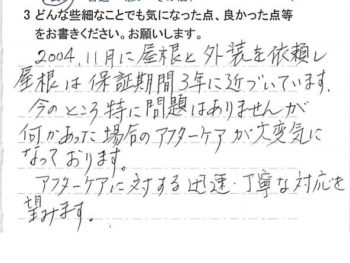 3 どんな些細なことでも気になった点、良かった点等
をお書きください。お願いします。
2004.11月に屋根と外装を依頼し
屋根は保証期間3年に近づいています.
今のところ特に問題はありませんが
何かあった場合のアフターケアが大変気に
なっております。
アフターケアに対する迅速・丁寧な対応を
望みます。